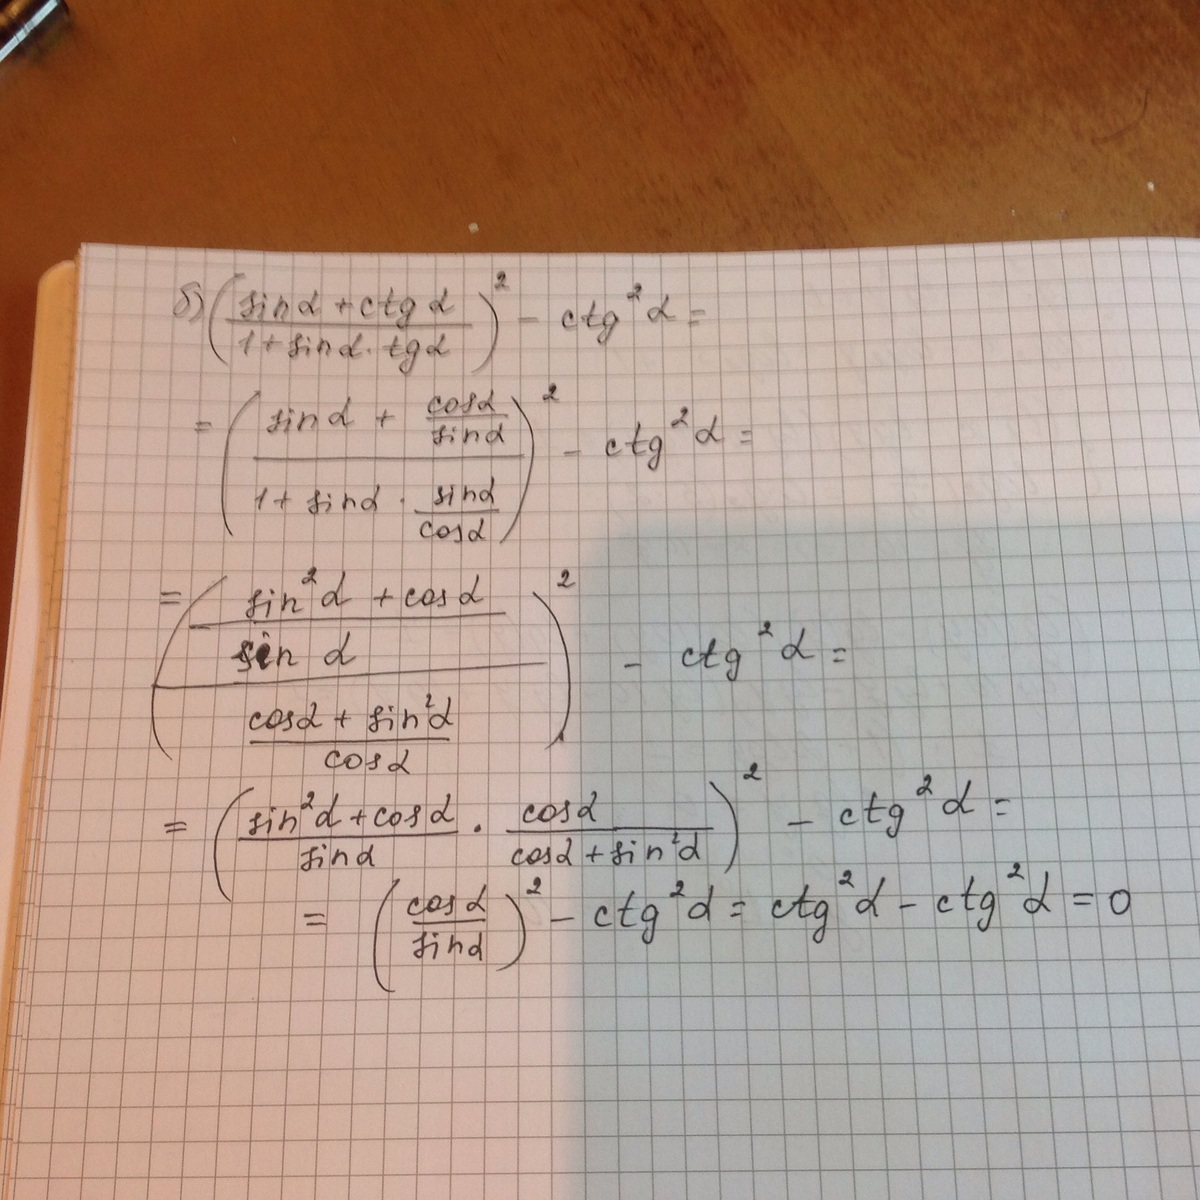 б) ((sin α + ctg α)/(1 + sin α · tg α))² - ctg² α =
= ((sin α + cos α/sin α)/(1 + sin α · sin α/cos α))² - ctg² α =
= (((sin² α + cos α)/sin α)/((cos α + sin² α)/cos α))² - ctg² α =
= ((sin² α + cos α)/sin α · cos α/(cos α + sin² α))² - ctg² α =
= (cos α/sin α)² - ctg² α = ctg² α - ctg² α = 0